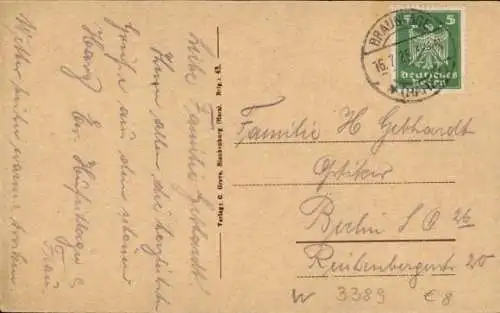 Liebe Familie Gebhardt!
Ihnen allen die herzlichsten
Grüße aus dem schönen
Harz
Frau
Wetter bisher warm trocken
Verlag: C. Grove, Blankenburg (Harz). Brig.: 43.
BRAUN
16.7.2
5
Deutsches
Reich
Familie H Gebhardt
Optiker
Berlin S. O. 26
Reichenbergerstr 20
W 3389 € 8